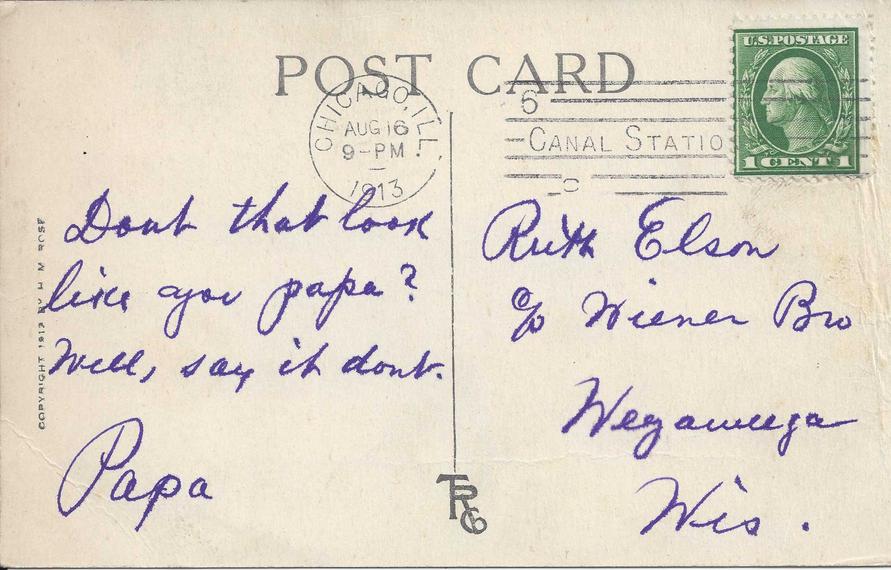 POST CARD
CHICAGO, ILL.
AUG 16
9-PM
1913
6
CANAL STATIO
U.S. POSTAGE
1 CENT 1
Dont that look
like you papa?
Well, say it dont.
Papa
Ruth Elson
c/o Wiener Bro
Weyauwega
Wis.
COPYRIGHT 1912 BY H M ROSE
TRCo